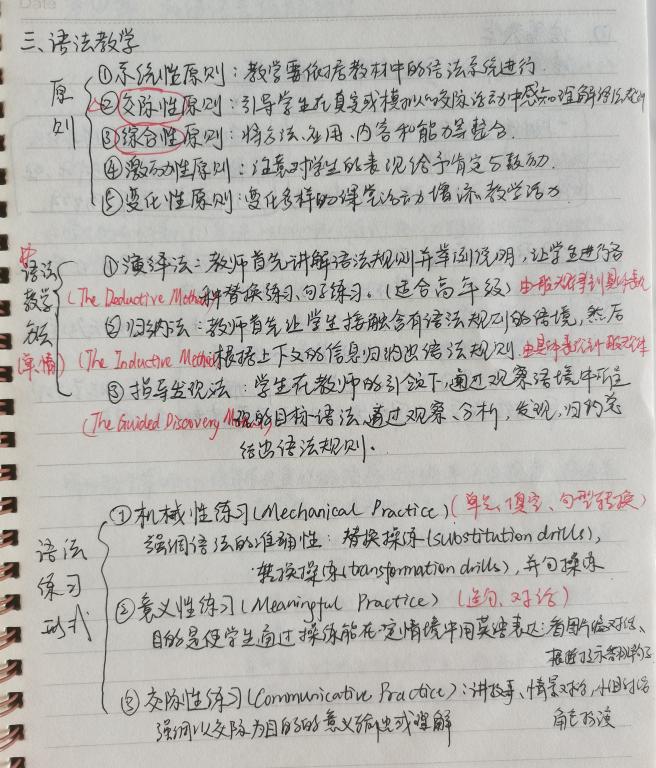 三、语法教学
原则
①系统性原则：教学要依据教材中的语法系统进行
②交际性原则：引导学生在真实或模拟的交际活动中感知理解语法知识
③综合性原则：将方法、应用、内容和能力等整合.
④激励性原则：注意对学生的表现给予肯定与鼓励.
⑤变化性原则：变化多样的课堂活动增添教学活力
语法教学方法
(单、情)
①演绎法：教师首先讲解语法规则并举例说明，让学生进行各
(The Deductive Method)种替换练习、句子练习。(适合高年级) 由一般规则到具体
②归纳法：教师首先让学生接触含有语法规则的语境，然后
(The Inductive Method)根据上下文的信息归纳出语法规则. 由具体到一般
③指导发现法：学生在教师的引领下，通过观察语境中所呈
(The Guided Discovery Method)现的目标语法，通过观察、分析，发现，归纳总
结出语法规则.
语法练习形式
①机械性练习(Mechanical Practice)(单词、填空、句型转换)
强调语法的准确性：替换操练(substitution drills),
转换操练(transformation drills), 并句操练
②意义性练习(Meaningful Practice) (造句、对话)
目的是使学生通过操练能在一定情境中用英语表达：看图片编对话、
根据提示
③交际性练习(Communicative Practice)：讲故事、情景对话，小组对话
强调以交际为目的的意义输出或理解
角色扮演